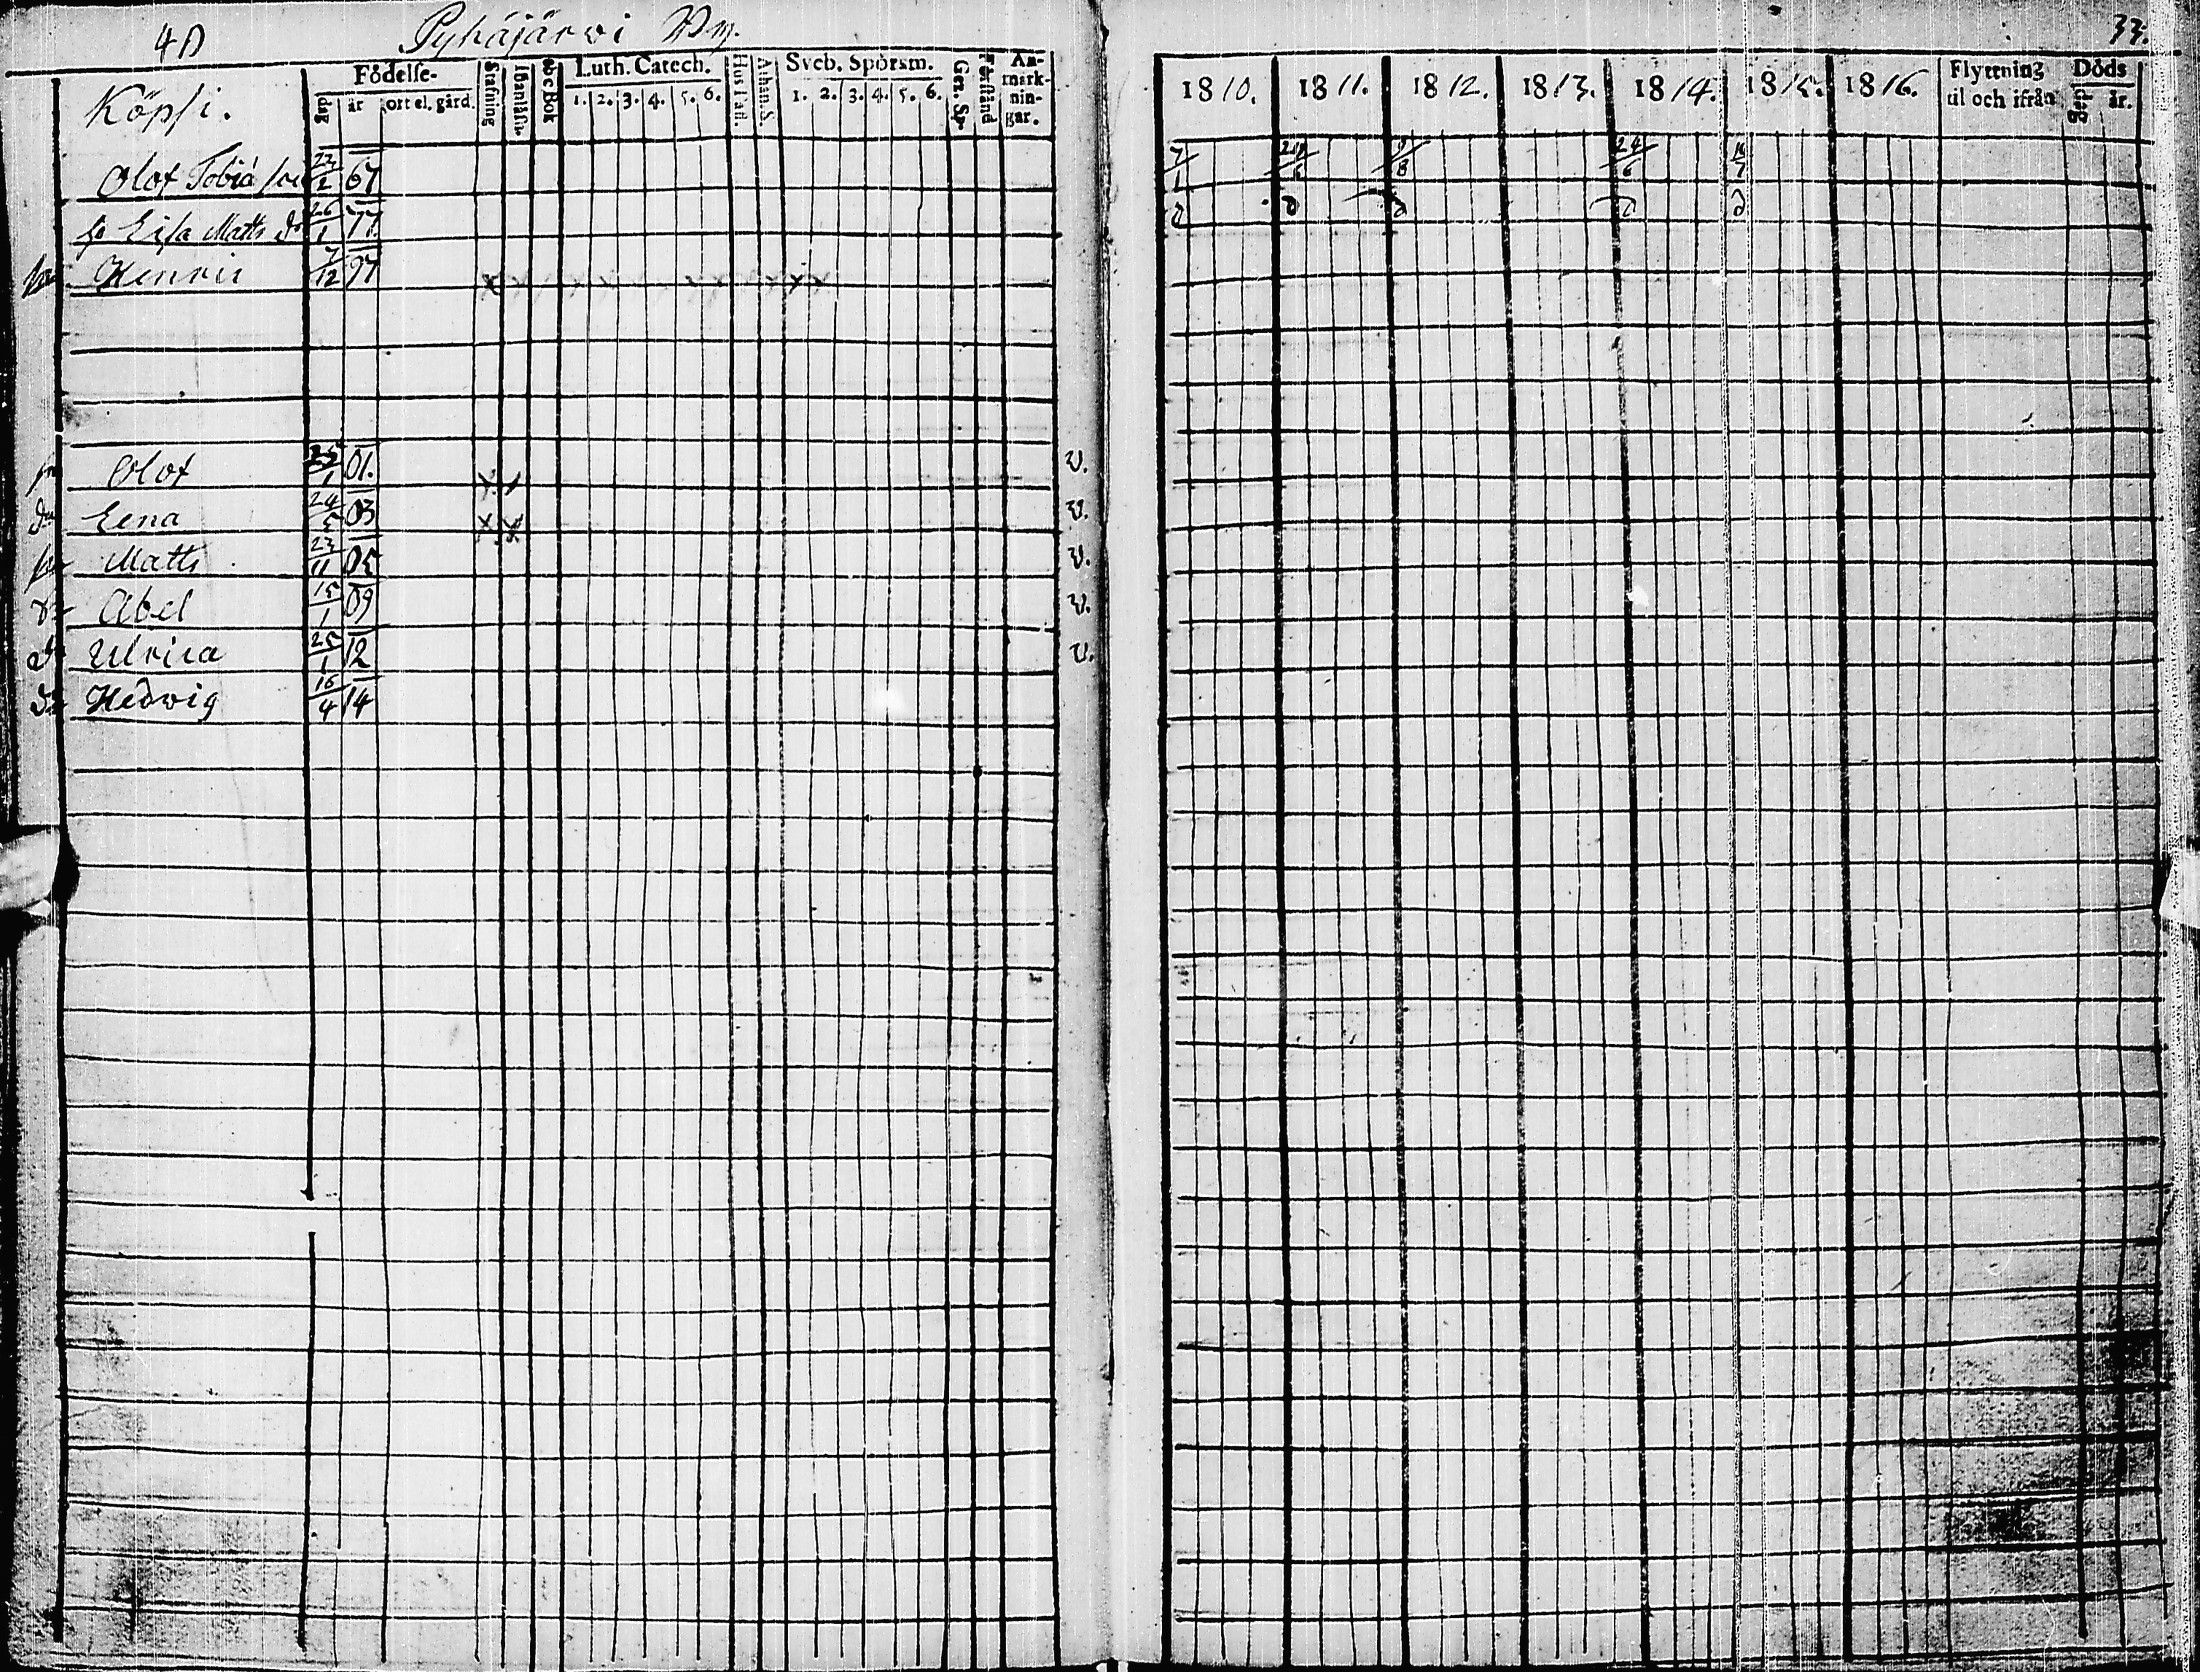 Pyhäjärwi By. 33.
Köpsi.
Födelse-
dag år ort el. gård.
Stafning
abc Bok
Luth. Catech.
1. 2. 3. 4. 5. 6.
Hust afl.
Athan. S.
Sveb. Spörsm.
1. 2. 3. 4. 5. 6.
Gez. Sp.
Förstånd
An-
märk-
nin-
gar.
1810. 1811. 1812. 1813. 1814. 1815. 1816.
Flyttning
til och ifrån
Döds
dag år.
Olof Tobiæ son 23/2 67 7/1 9/8 24/6
Lisa Matts dr 26/1 77.
Henric 7/12 97
Olof 25/1 01. v.
Lena 24/5 03 v.
Matts 23/11 05 v.
dr Abel 15/1 09 v.
dr Ulrica 25/1 12 v.
dr Hedwig 16/4 14